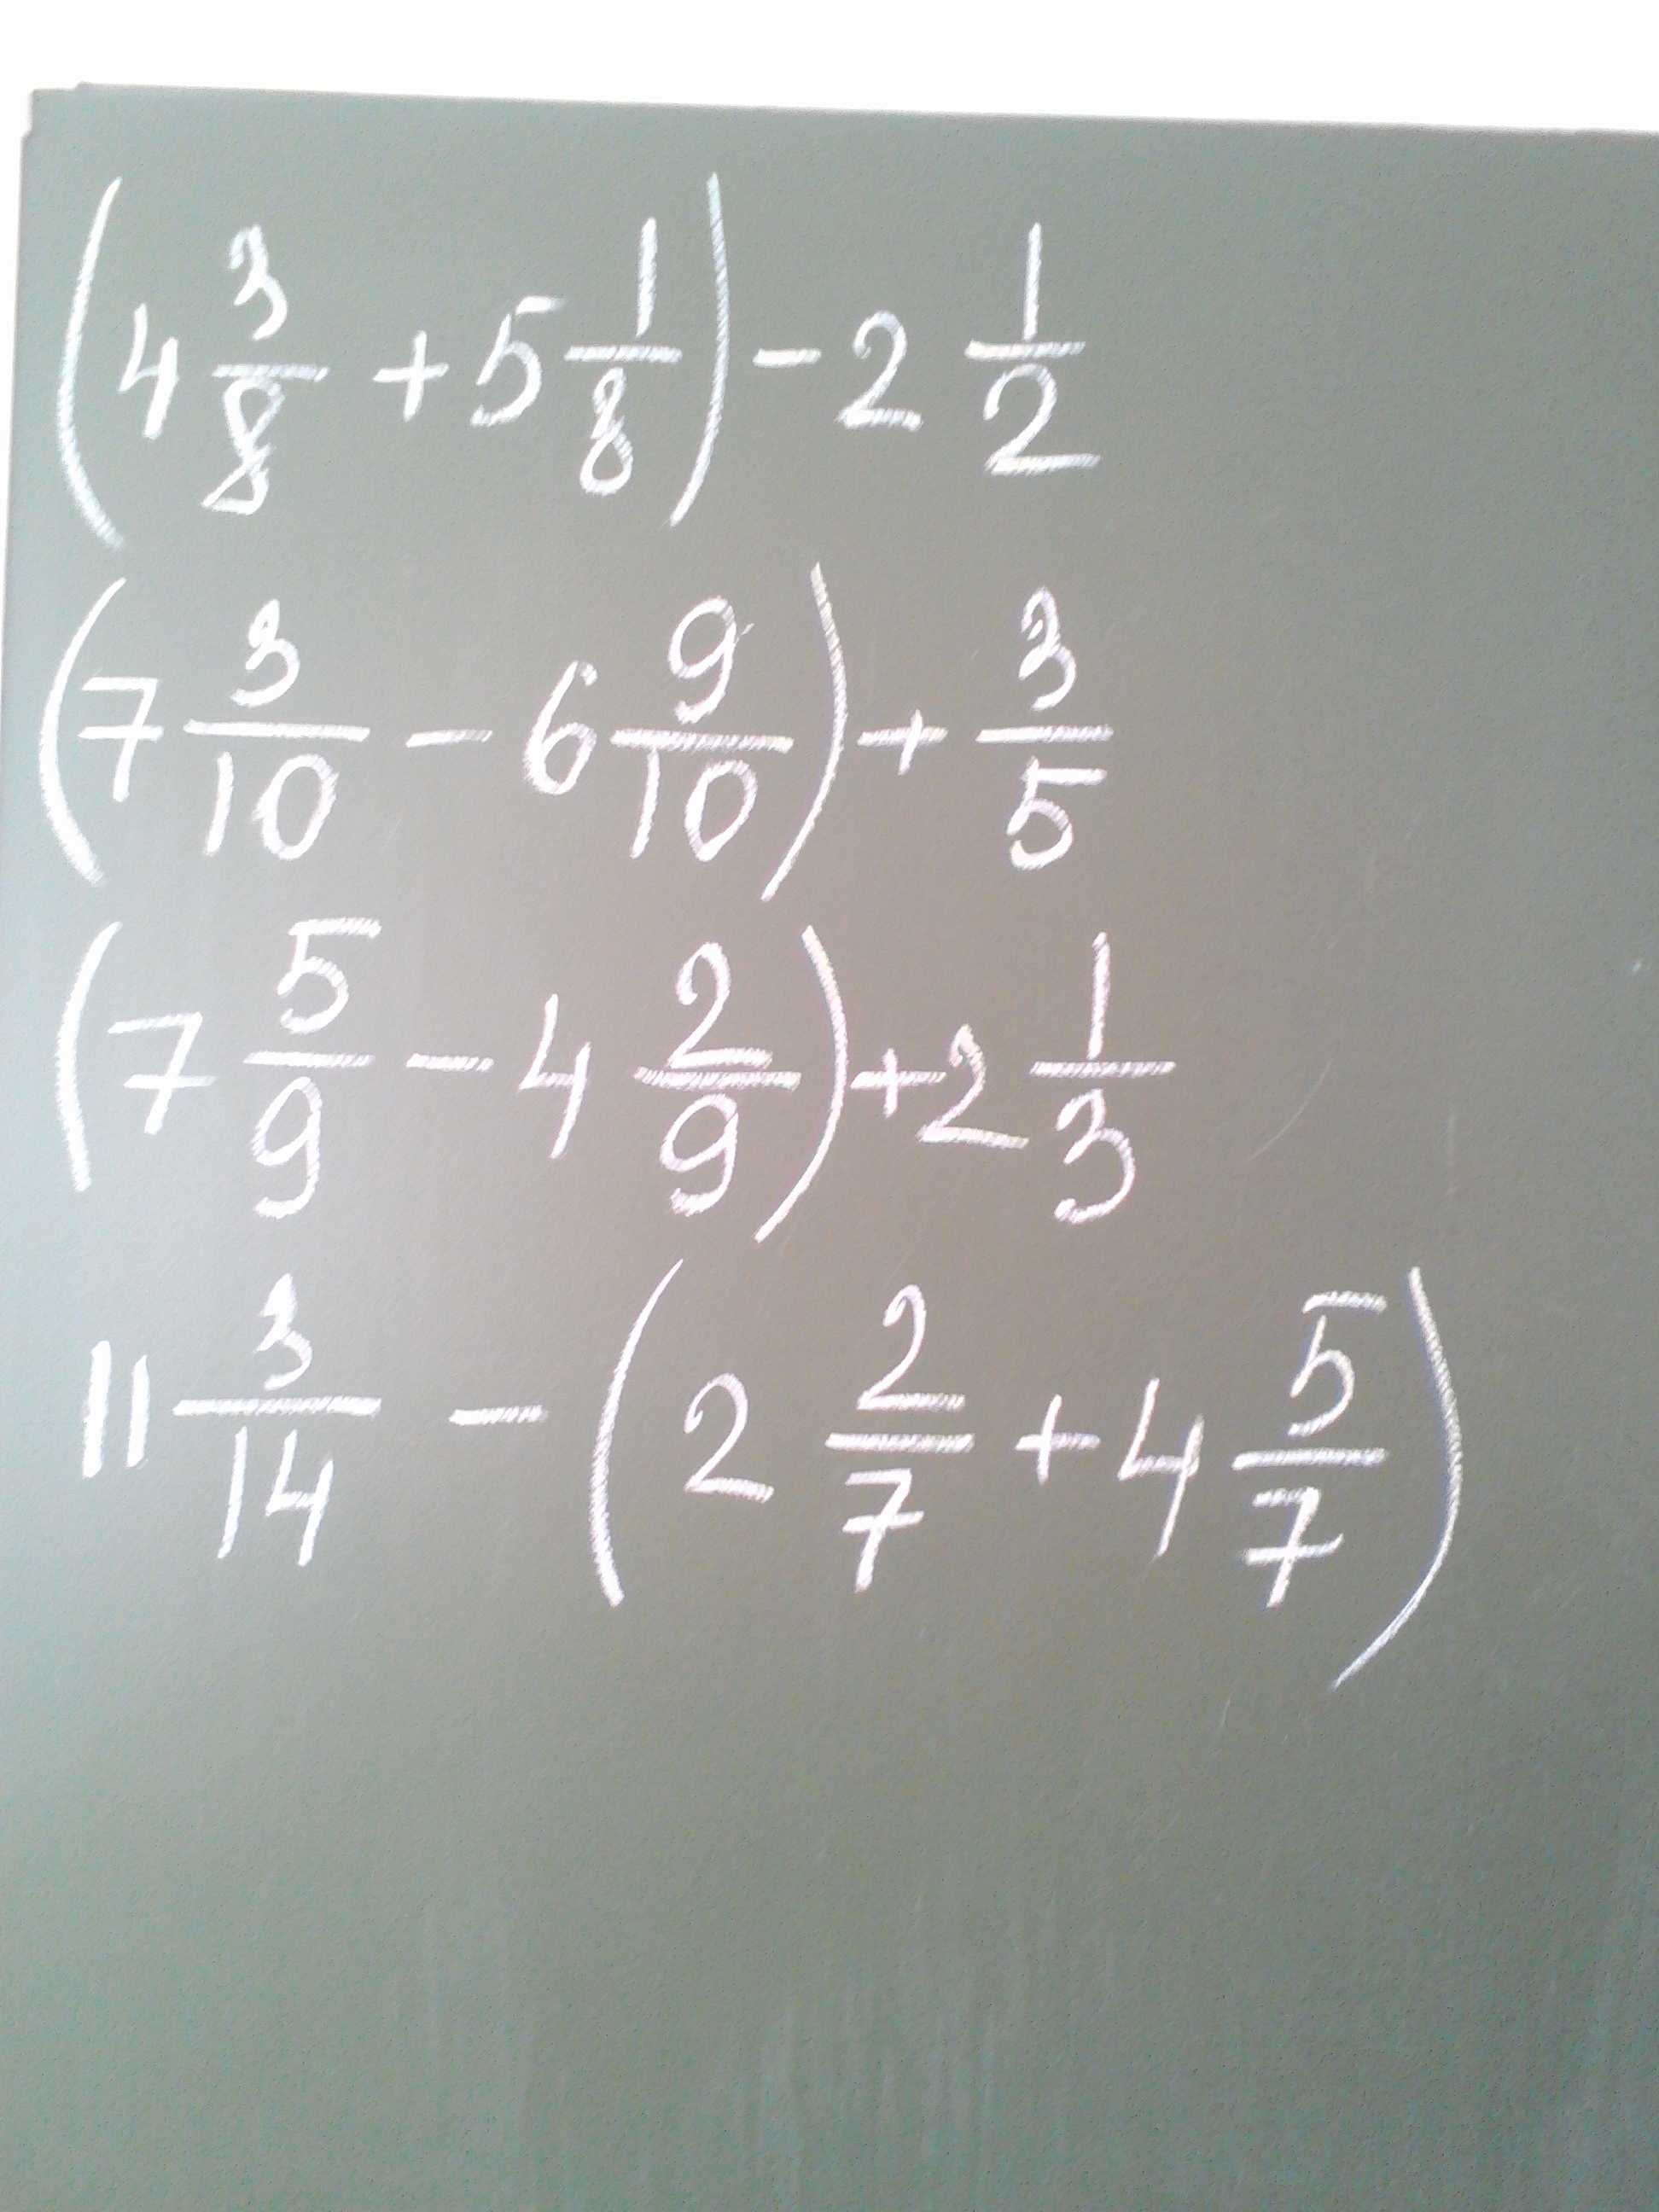 (4 3/8 + 5 1/8) - 2 1/2
(7 3/10 - 6 9/10) + 3/5
(7 5/9 - 4 2/9) + 2 1/3
11 3/14 - (2 2/7 + 4 5/7)